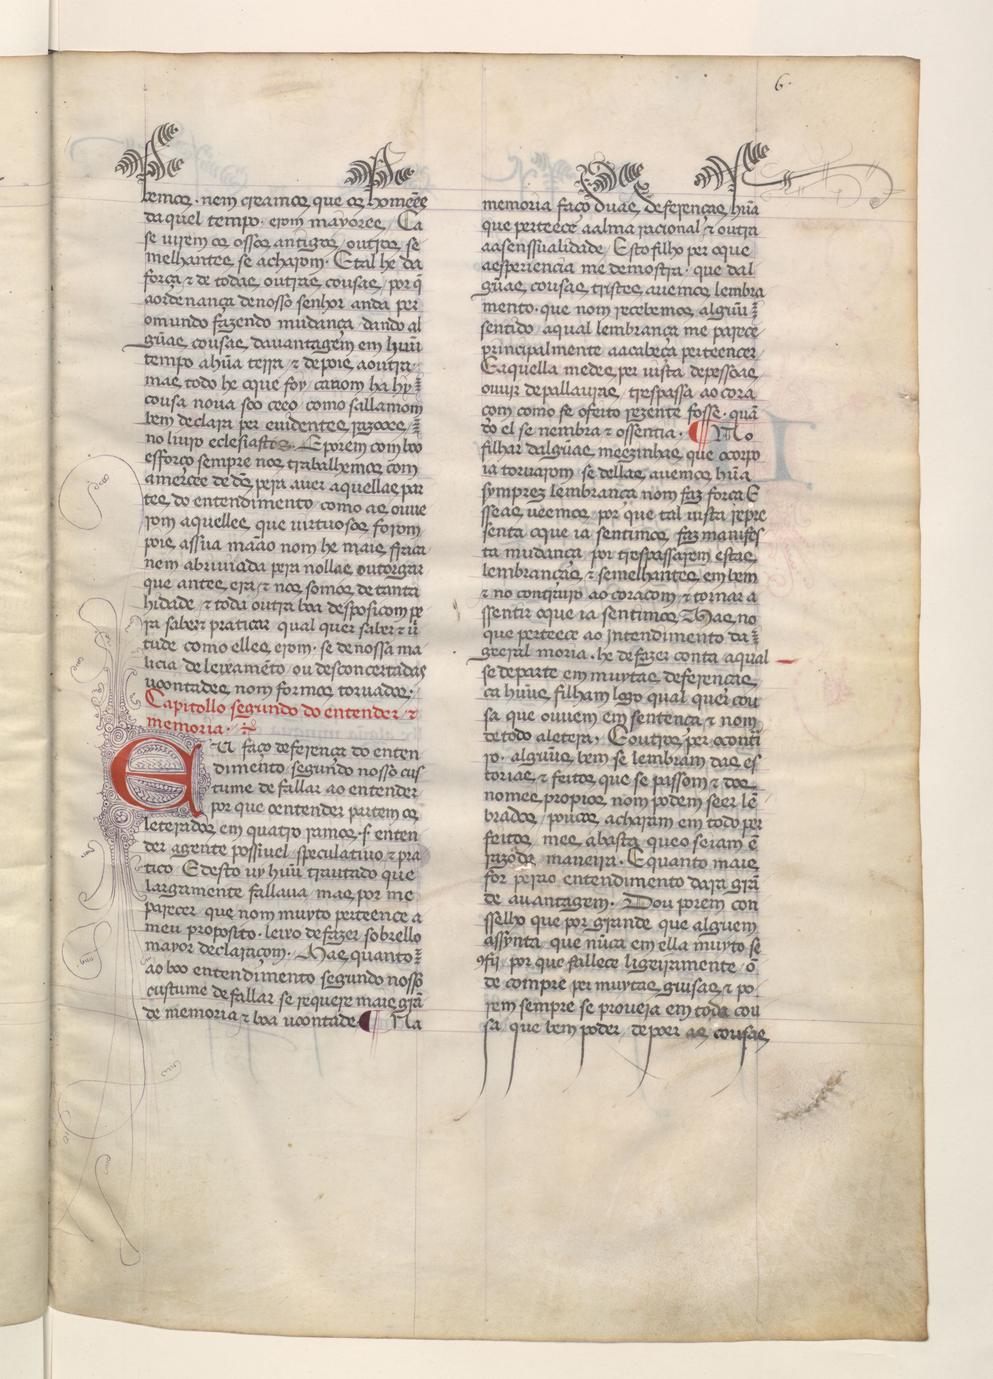 6
bemos. nem creamos que os homeẽs
daquel tempo. erom mayores, Ca
se virem os ossos antigos, outros, se
melhantes, se acharom. E tal he da
força ⁊ de todas, outras, cousas, por q̄
a ordenança de nosso senhor anda per
o mundo fazendo mudança dando al
gũas, cousas, davantagem em hũu
tempo a hũa terra ⁊ depois a outra.
mas, todo he o que foy ca nom ha hy
cousa nova soo ceeo como sallamom
bem declara per evidentes, razoões,
no livro eclesiastes. E porem com boo
esforço sempre nos trabalhemos com
a mercee de ds, pera aver aquellas par
tes, do entendimento como as, ouve
rom aquelles, que virtuosos forom
pois, assua mãao nom he mais, fraca
nem abrviada pera nollas, outorgar
que antes, era, ⁊ nos somos de tanta
hidade ⁊ toda outra boa desposiçom pe
ra saber ⁊ praticar qual quer saber ⁊ v̄
tude como elles, erom. se de nossa ma
licia de leixamẽto ou desconcertadas
voontades, nom formos torvados.
Capitollo segundo do entender ⁊
memoria.
Eu faço deferença do enten
dimento segundo nosso cus
tume de fallar ao entender
por que o entender partem os
leterados, em quatro ramos. s. enten
der agente possivel speculativo ⁊ pra
tico E desto vy hũu trautado que
largamente fallava mas, por me
parecer que nom muyto perteence a
meu proposito. leixo de fazer sobrello
mayor declaraçom. Mas, quanto
ao boo entendimento segundo nosso
custume de fallar se requere mais, grã
de memoria ⁊ boa voontade. ¶ Na
memoria faço duas, deferenças, hũa
que perteece a alma racional ⁊ outra
aa senssualidade, Esto filho per o que
a esperiencia me demostra. que dal
gũas, cousas, tristes, avemos lembra
mento. que nom recebemos, algũu
sentido, a qual lembrança me parece
principalmente aa cabeça perteencer
E aquella medes, per vista de pessoas,
ouvir de pallavras, trespassa ao cora
çom como se o feito rezente fosse. quã
do el se nembra ⁊ o ssentia. ¶ No
filhar dalgũas, meezinhas, que o corpo
ia torvarom. se dellas, avemos hũa
symprez lembrança nom faz força E
sse as, veemos, por que tal vista repre
senta o que ia sentimos, faz manifes
ta mudança, por trespassarem estas,
lembranças, ⁊ semelhantes, em bem
⁊ no contrairo ao coraçom, ⁊ tornar a
ssentir o que ia sentimos, Mas, no
que perteece ao intendimento da
geeral moria. he de fazer conta a qual
se departe em muytas, deferenças,
ca hũus, filham logo qual quer cou
sa que ouvem em sentença, ⁊ nom
de todo a letera. E outros, per o contr
ro. algũus, bem se lembram das, es
torias, ⁊ feitos, que se passom ⁊ dos,
nomes, propios, nom podem seer lẽ
brados, poucos, acharam em todo per
feitos, mes, abasta que o seiam ẽ
razoada maneira. E quanto mais,
for per o entendimento dara grã
de avantagem. Dou porem con
sselho que por grande que alguem
assynta, que nũca em ella muyto se
ꝯfii, por que fallece ligeiramente, o
de compre per muytas, guisas, ⁊ po
rem sempre se proveia em toda cou
sa, que bem poder de poer as, cousas,